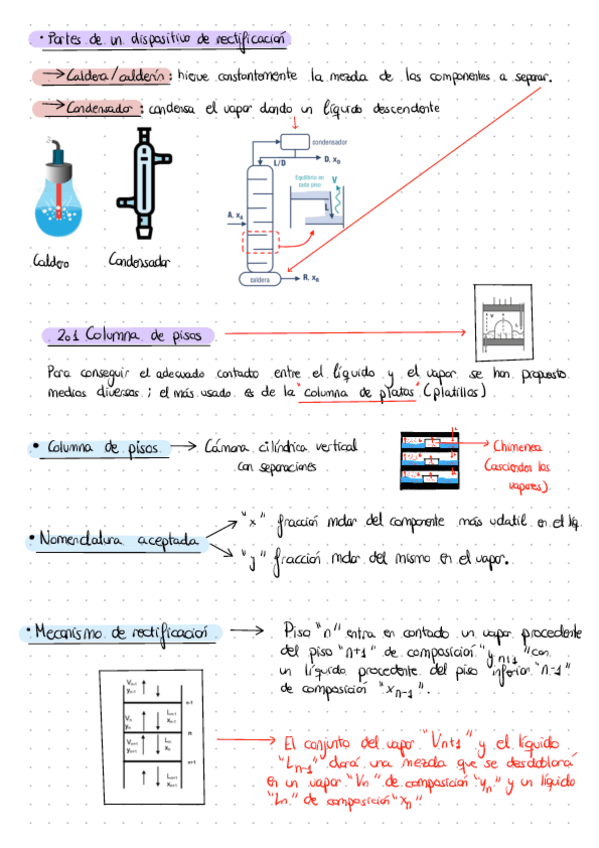 · Partes de un dispositivo de rectificación
→ Caldera/calderín: hierve constantemente la mezcla de los componentes a separar.
→ Condensador: condensa el vapor dando un líquido descendente
condensador
L/D
D, xD
Equilibrio en
cada piso
V
L
A, xA
caldera
R, xR
Caldero
Condensador
2.1 Columna de pisos
Para conseguir el adecuado contacto entre el líquido y el vapor se han propuesto
medios diversos; el más usado es de la "columna de platos" (platillos)
• Columna de pisos → Cámara cilíndrica vertical
con separaciones
→ Chimenea
(ascienden los
vapores).
• Nomenclatura aceptada
"x" fracción molar del componente más volátil en el líq.
"y" fracción molar del mismo en el vapor.
• Mecanismo de rectificación → Piso "n" entra en contacto un vapor procedente
del piso "n+1" de composición "yn+1" con
un líquido procedente del piso inferior "n-1"
de composición "xn-1".
Vn-1
yn-1
n-1
Vn
yn
Ln-1
xn-1
n
Vn+1
yn+1
Ln
xn
n+1
Ln+1
xn+1
→ El conjunto del vapor "Vn+1" y el líquido
"Ln-1" dará una mezcla que se desdoblará
en un vapor "Vn" de composición "yn" y un líquido
"Ln" de composición "xn"